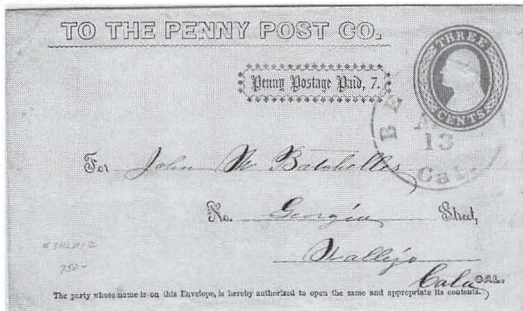 TO THE PENNY POST CO.
THREE
CENTS
Penny Postage Paid, 7.
BE
A
13
Cal.
For John W Batchelder
No. Georgia Street,
Vallejo
Cala CAL.
750-
The party whose name is on this Envelope, is hereby authorized to open the same and appropriate its contents.